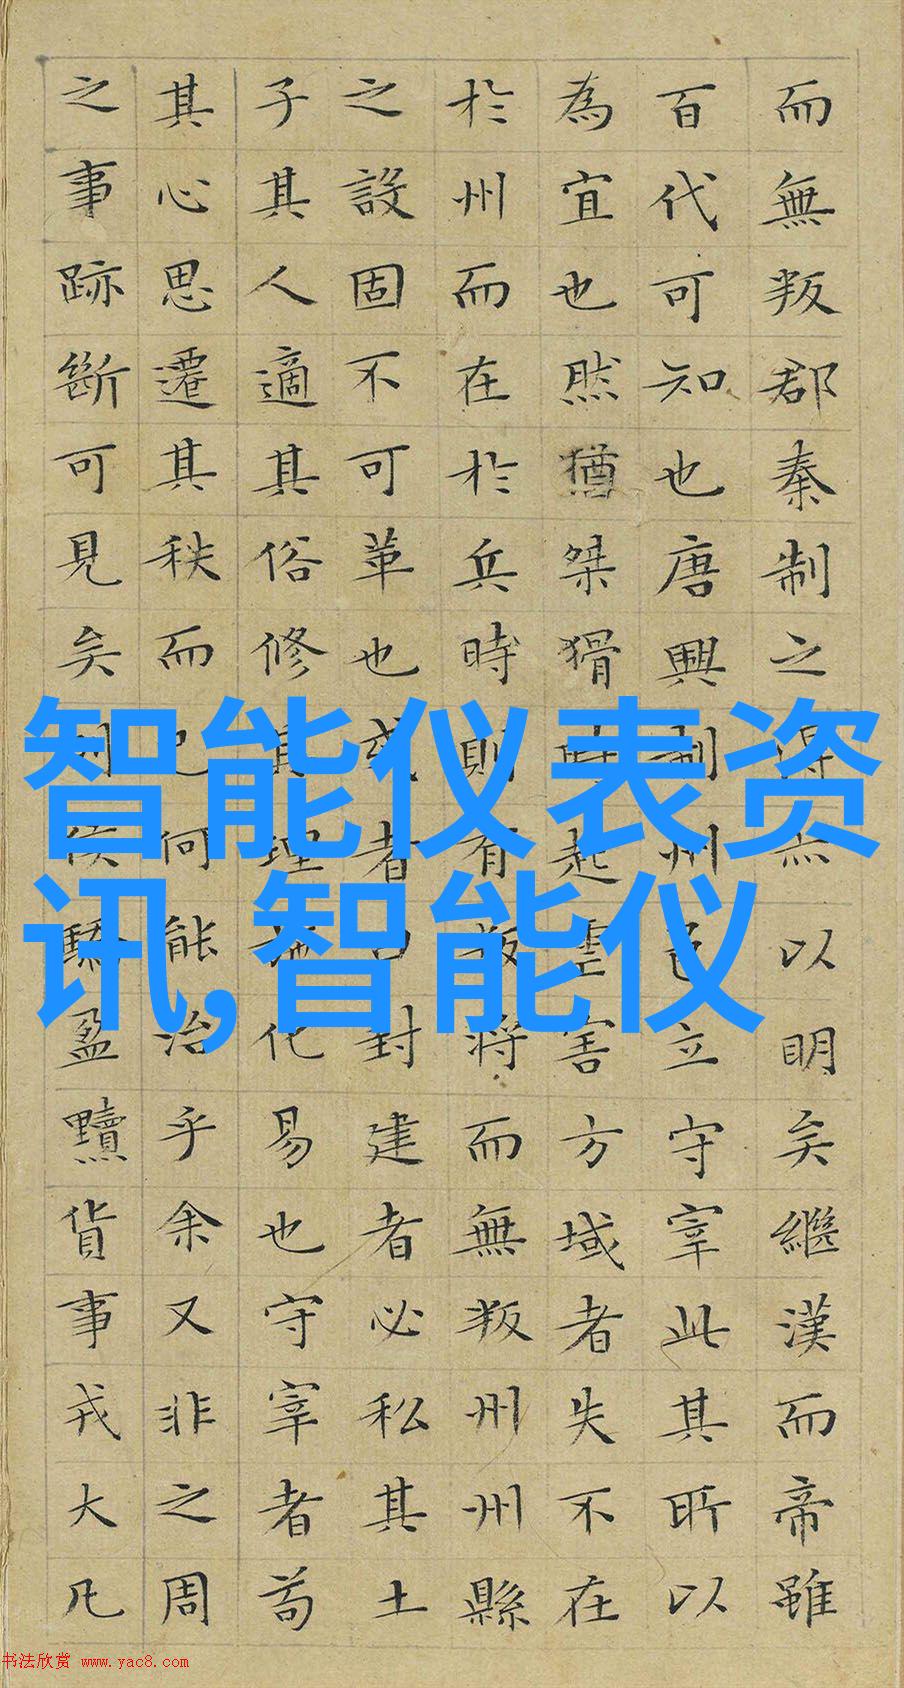 而無叛郡秦制之得亦以明矣繼漢而帝雖
百代可知也唐興制州邑立守宰此其所以
為宜也然猶桀猾時起虐害方域者失不在
於州而在於兵時則有叛將而無叛州州縣
之設固不可革也或者曰封建者必私其土
子其人適其俗修其理施化易也守宰者苟
其心思遷其秩而已何能治乎余又非之周
之事跡斷可見矣列侯驕盈黷貨事戎大凡
智能仪表资
讯,智能仪
书法欣赏 www.yac8.com